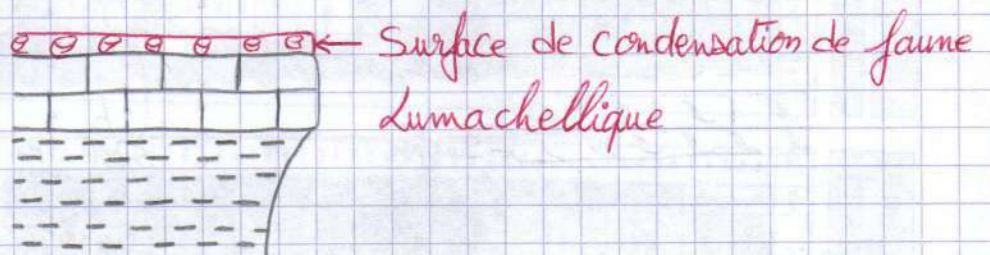 Surface de condensation de faune
Lumachellique